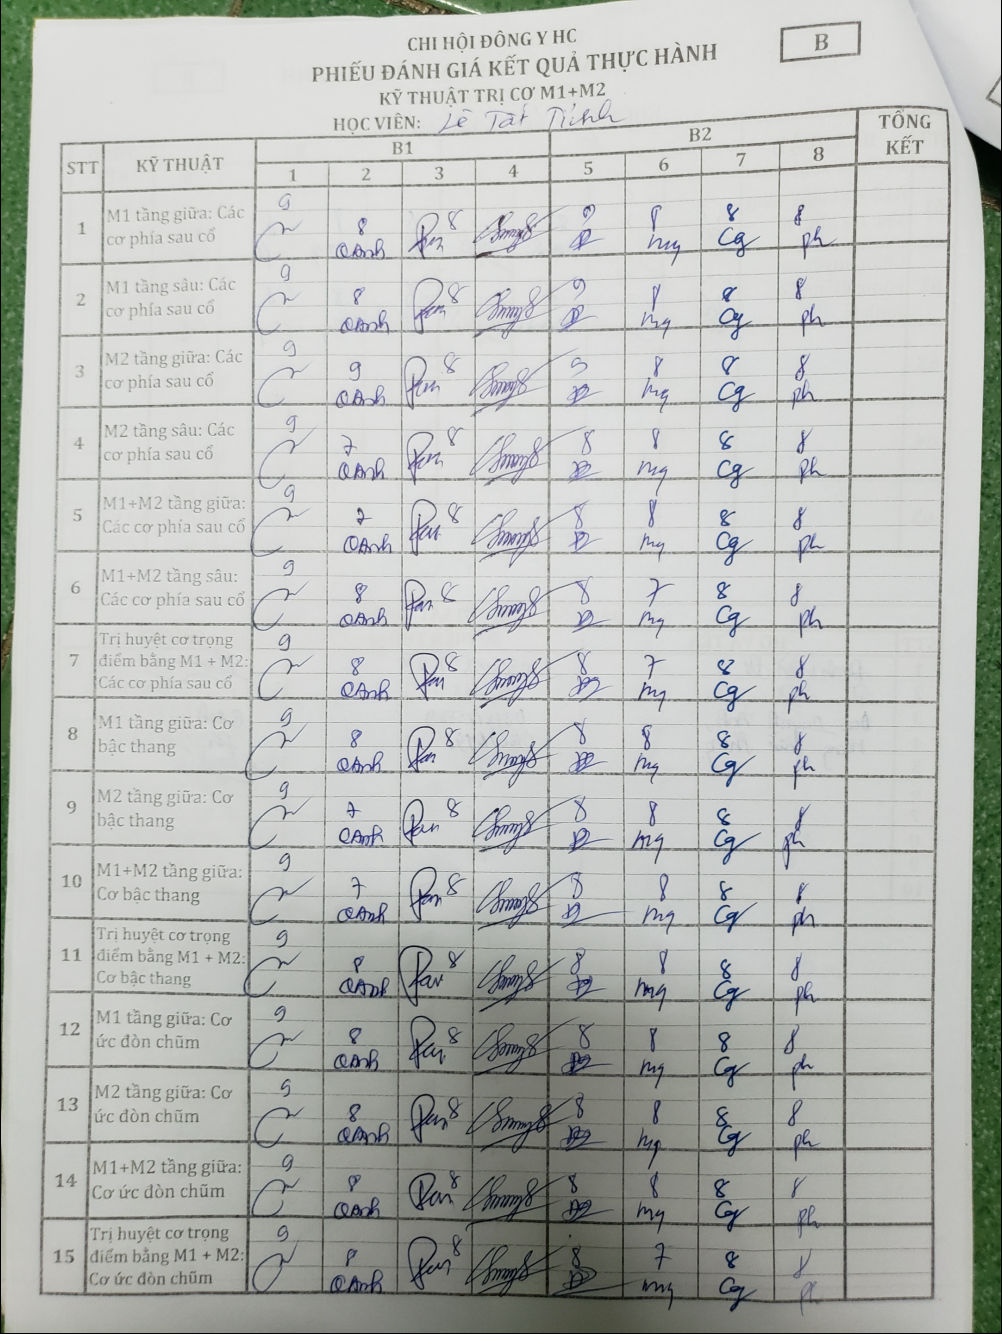 CHI HỘI ĐÔNG Y HC
B
PHIẾU ĐÁNH GIÁ KẾT QUẢ THỰC HÀNH
KỸ THUẬT TRỊ CƠ M1+M2
HỌC VIÊN: Lê Tất Tính
STT KỸ THUẬT B1 B2 TỔNG KẾT
1 2 3 4 5 6 7 8
1 M1 tầng giữa: Các cơ phía sau cổ 9 8 8 8 9 8 8 8
OAnh mq Cg ph
2 M1 tầng sâu: Các cơ phía sau cổ 9 8 8 8 9 8 8 8
OAnh mq Cg ph
3 M2 tầng giữa: Các cơ phía sau cổ 9 9 8 8 9 8 8 8
OAnh mq Cg ph
4 M2 tầng sâu: Các cơ phía sau cổ 9 7 8 8 8 8 8 8
OAnh mq Cg ph
5 M1+M2 tầng giữa: Các cơ phía sau cổ 9 7 8 8 8 8 8 8
OAnh mq Cg ph
6 M1+M2 tầng sâu: Các cơ phía sau cổ 9 8 8 8 8 7 8 8
OAnh mq Cg ph
7 Trị huyệt cơ trọng điểm bằng M1 + M2: Các cơ phía sau cổ 9 8 8 8 8 7 8 8
OAnh mq Cg ph
8 M1 tầng giữa: Cơ bậc thang 9 8 8 8 8 8 8 8
OAnh mq Cg ph
9 M2 tầng giữa: Cơ bậc thang 9 7 8 8 8 8 8 8
OAnh mq Cg ph
10 M1+M2 tầng giữa: Cơ bậc thang 9 7 8 8 8 8 8 8
OAnh mq Cg ph
11 Trị huyệt cơ trọng điểm bằng M1 + M2: Cơ bậc thang 9 8 8 8 8 8 8 8
OAnh mq Cg ph
12 M1 tầng giữa: Cơ ức đòn chũm 9 8 8 8 8 8 8 8
OAnh mq Cg ph
13 M2 tầng giữa: Cơ ức đòn chũm 9 8 8 8 8 8 8 8
OAnh mq Cg ph
14 M1+M2 tầng giữa: Cơ ức đòn chũm 9 8 8 8 8 8 8 8
OAnh mq Cg ph
15 Trị huyệt cơ trọng điểm bằng M1 + M2: Cơ ức đòn chũm 9 8 8 8 8 7 8 8
OAnh mq Cg ph